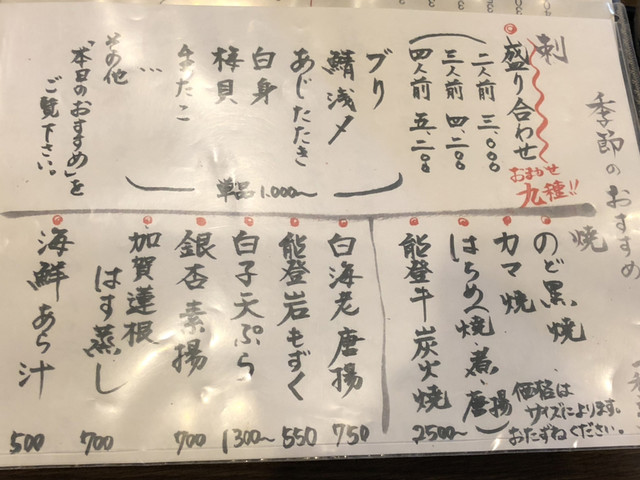 季節のおすすめ
刺
盛り合わせ
おまかせ
九種!!
二人前 三、〇〇〇
三人前 四、二〇〇
四人前 五、二〇〇
ブリ
鯖浅〆
あじたたき
白身
梅貝
生たこ
…
その他
「本日のおすすめ」を
ご覧下さい。
単品 1.000〜
焼
のど黒焼
カマ焼
はちめ(焼・煮・唐揚)
価格は
サイズによります。
おたずねください。
能登牛炭火焼 2500〜
白海老唐揚 750
能登岩もずく 550
白子天ぷら 1300〜
銀杏素揚 700
加賀蓮根
はす蒸し 700
海鮮あら汁 500